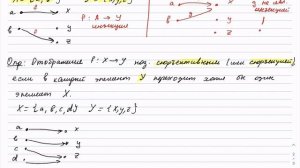 a x a x
P: X → Y y не инъ-
b y инъекция b y екцией
z z
Опр: Отображение P: X → Y наз. сюръективным (или сюръекцией)
если в каждый элемент Y приходит хотя бы один
элемент X.
X = {a, b, c, d} Y = {x, y, z}
a x
b y
c z
d